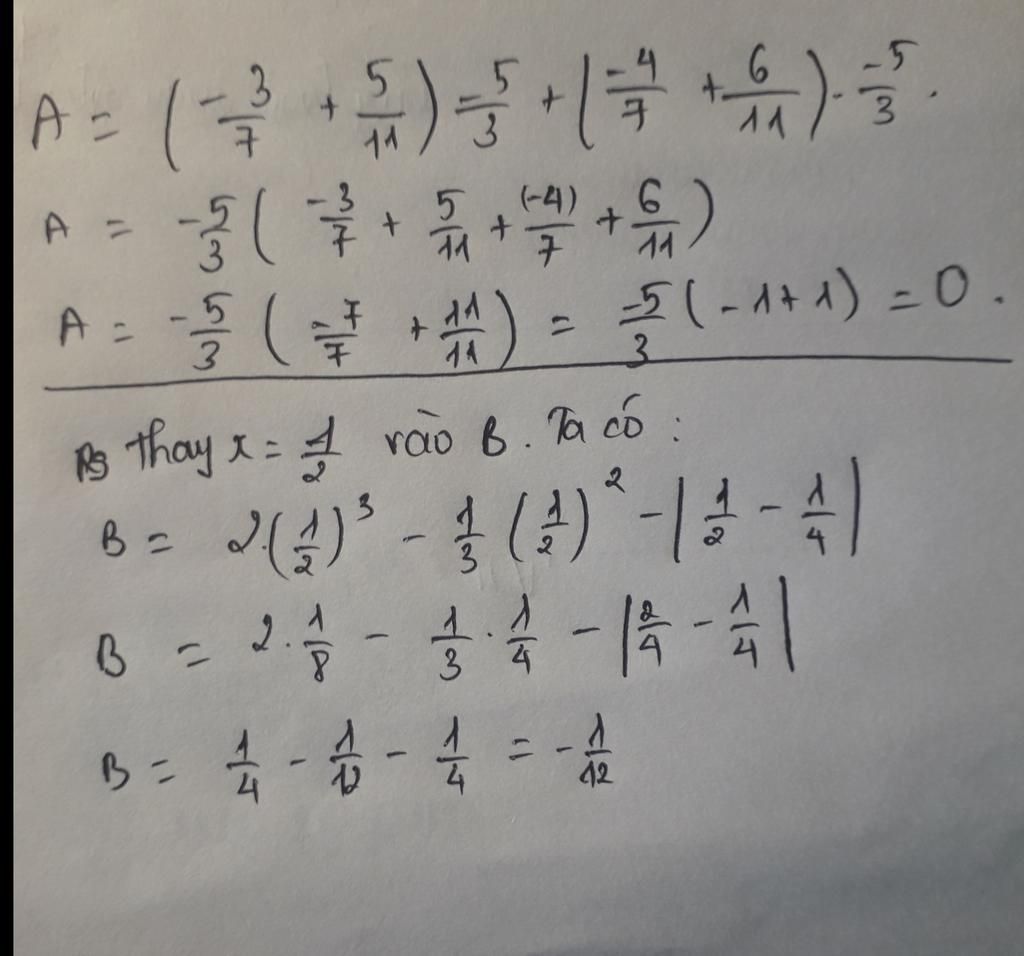 A = (-3/7 + 5/11) -5/3 + (-4/7 + 6/11) . -5/3 .
A = -5/3 ( -3/7 + 5/11 + (-4)/7 + 6/11 )
A = -5/3 ( -7/7 + 11/11 ) = -5/3 ( -1 + 1 ) = 0 .
thay x = 1/2 vào B . Ta có :
B = 2.(1/2)³ - 1/3 (1/2)² - |1/2 - 1/4|
B = 2 . 1/8 - 1/3 . 1/4 - |2/4 - 1/4|
B = 1/4 - 1/12 - 1/4 = -1/12